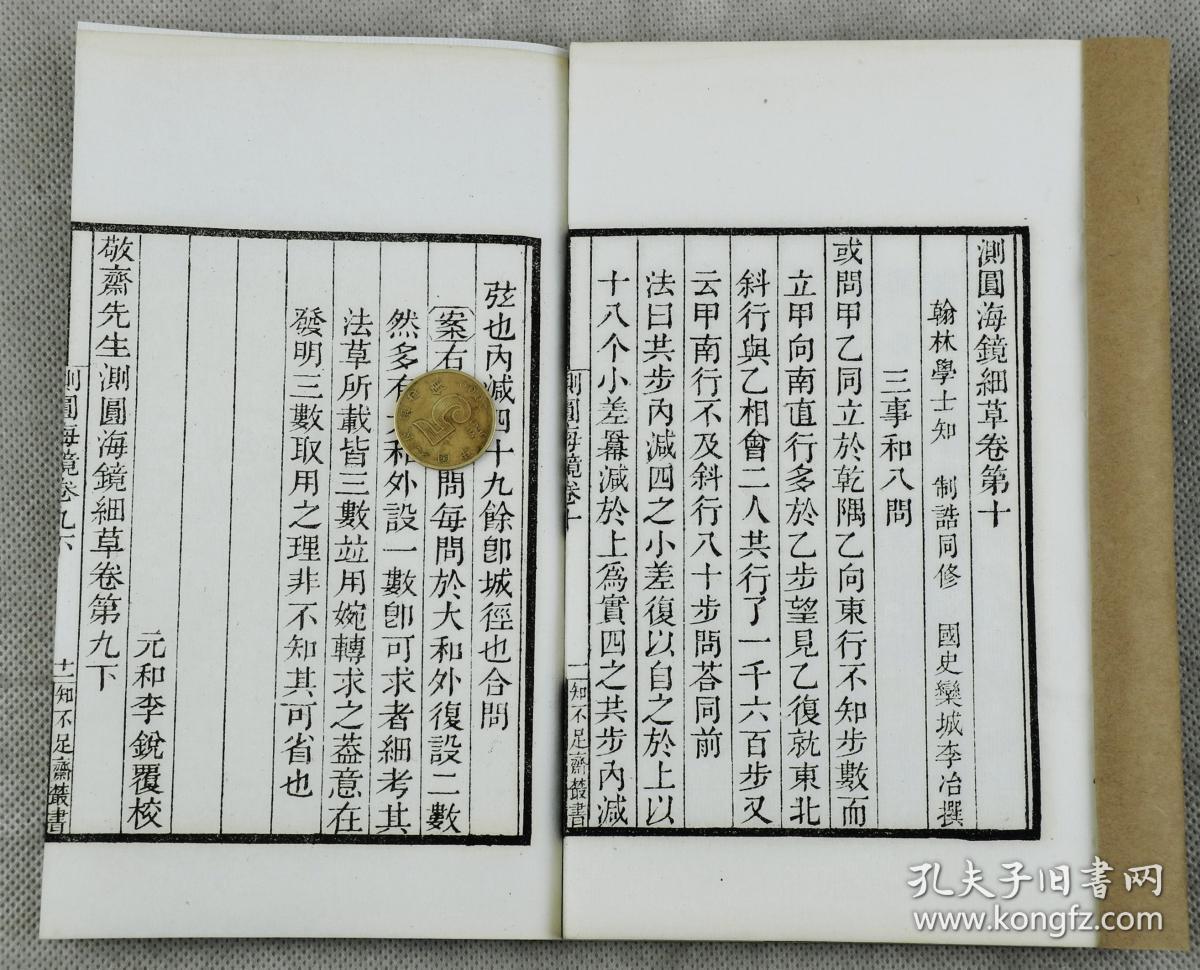 測圓海鏡細草卷第十
翰林學士知 制誥同修 國史欒城李冶撰
三事和八問
或問甲乙同立於乾隅乙向東行不知步數而
立甲向南直行多於乙步望見乙復就東北
斜行與乙相會二人共行了一千六百步又
云甲南行不及斜行八十步問答同前
法曰共步內減四之小差復以自之於上以
十八个小差冪減於上爲實四之共步內減
測圓海鏡卷十
一
知不足齋叢書
弦也內減四十九餘卽城徑也合問
案右 問每問於大和外復設二數
然多有 和外設一數卽可求者細考其
法草所載皆三數並用婉轉求之葢意在
發明三數取用之理非不知其可省也
元和李銳覆校
敬齋先生測圓海鏡細草卷第九下
測圓海鏡卷九下
十一
知不足齋叢書
5
孔夫子旧书网
www.kongfz.com